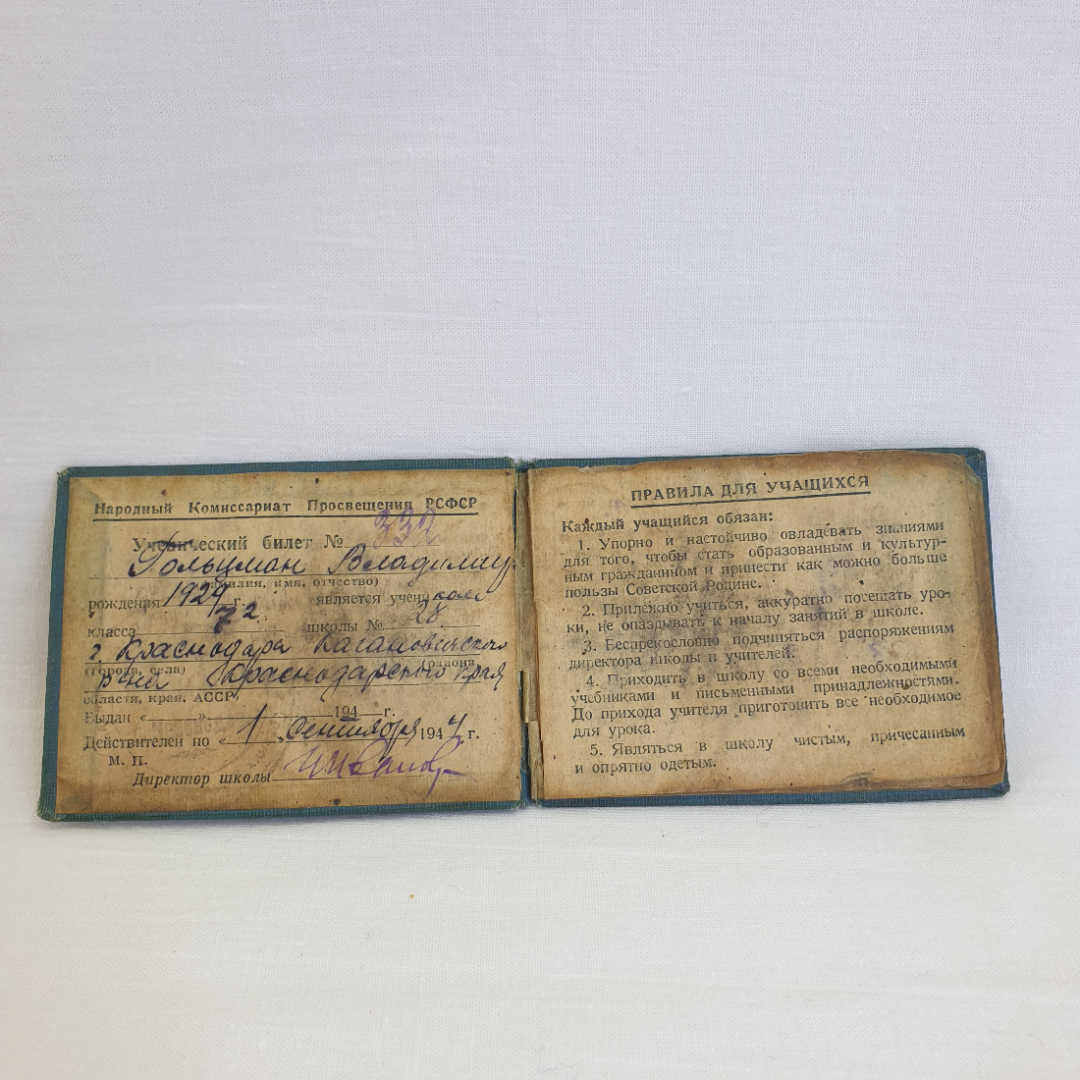 Народный Комиссариат Просвещения РСФСР
Ученический билет № 332
Гольцман Владимир
(фамилия, имя, отчество)
рождения 1929 г. является учеником
класса 7 2 школы № 28
г. Краснодара Кагановичского
(города, села) (района)
р-на Краснодарского края
области, края, АССР
Выдан « » 194 г.
Действителен по « 1 » сентября 1944 г.
М. П.
Директор школы
ПРАВИЛА ДЛЯ УЧАЩИХСЯ
Каждый учащийся обязан:
1. Упорно и настойчиво овладевать знаниями
для того, чтобы стать образованным и культур-
ным гражданином и принести как можно больше
пользы Советской Родине.
2. Прилежно учиться, аккуратно посещать уро-
ки, не опаздывать к началу занятий в школе.
3. Беспрекословно подчиняться распоряжениям
директора школы и учителей.
4. Приходить в школу со всеми необходимыми
учебниками и письменными принадлежностями.
До прихода учителя приготовить все необходимое
для урока.
5. Являться в школу чистым, причесанным
и опрятно одетым.